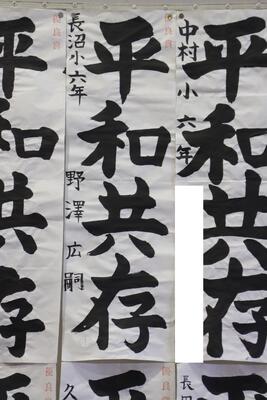 優良賞
平和共存
中村小 六年
優良賞
平和共存
長沼小六年
野澤広嗣
平和共存
優良賞
平
長
優良賞
平
久